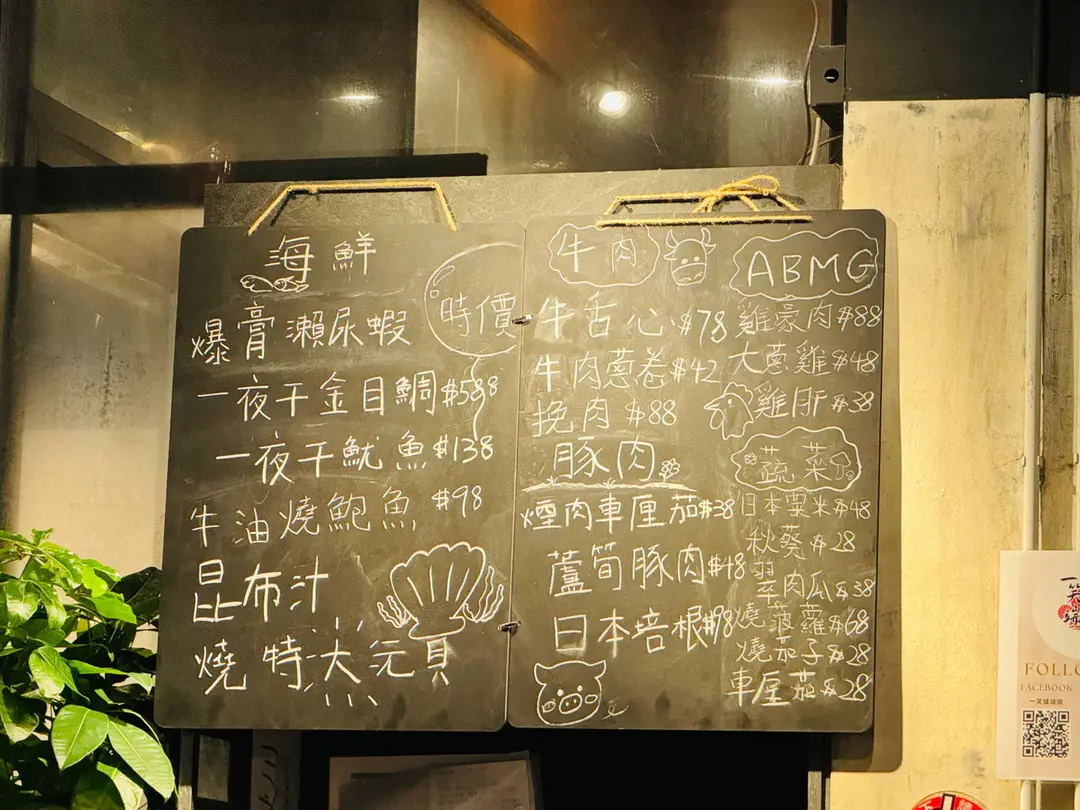 海鮮
時價
爆膏瀨尿蝦
一夜干金目鯛 $588
一夜干魷魚 $138
牛油燒鮑魚 $98
昆布汁
燒特大元貝
牛肉
牛舌心 $78
牛肉蔥卷 $42
挽肉 $88
豚肉
煙肉車厘茄 $38
蘆筍豚肉 $48
日本培根 $98
ABMG
雞豪肉 $88
大蔥雞 $48
雞肝 $38
蔬菜
日本粟米 $48
秋葵 $28
翠肉瓜 $38
燒菠蘿 $68
燒茄子 $28
車厘茄 $28
FOLLO
FACEBOOK